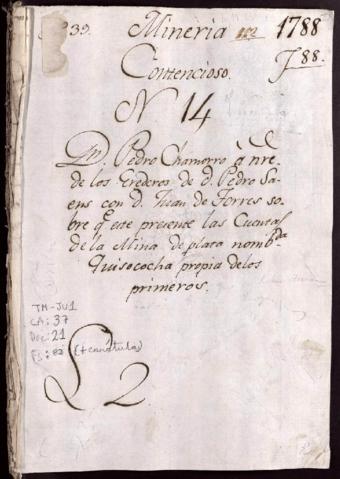 239. Mineria 1788
Contencioso. J88.
N. 14
Dn. Pedro Chamorro â nre.
de los Erederos de D. Pedro Sa-
ens con D. Juan de Torres so-
bre q. este presente las Cuentas
de la Mina de plata nombda
Quisococha propia delos
primeros.
TM-JU1
CA: 37
Doc: 21
Fs: 82 (+ carátula)
L 2